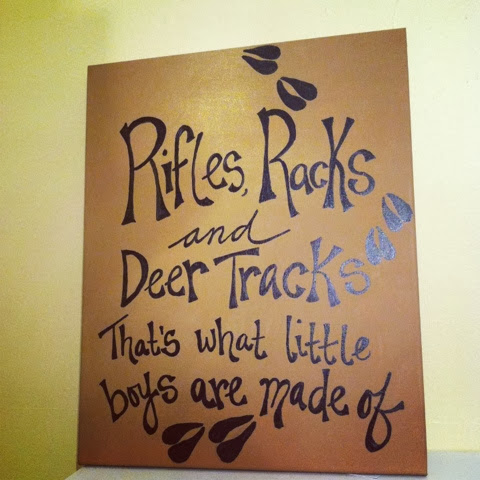 Rifles, Racks
and
Deer Tracks
That's what little
boys are made of